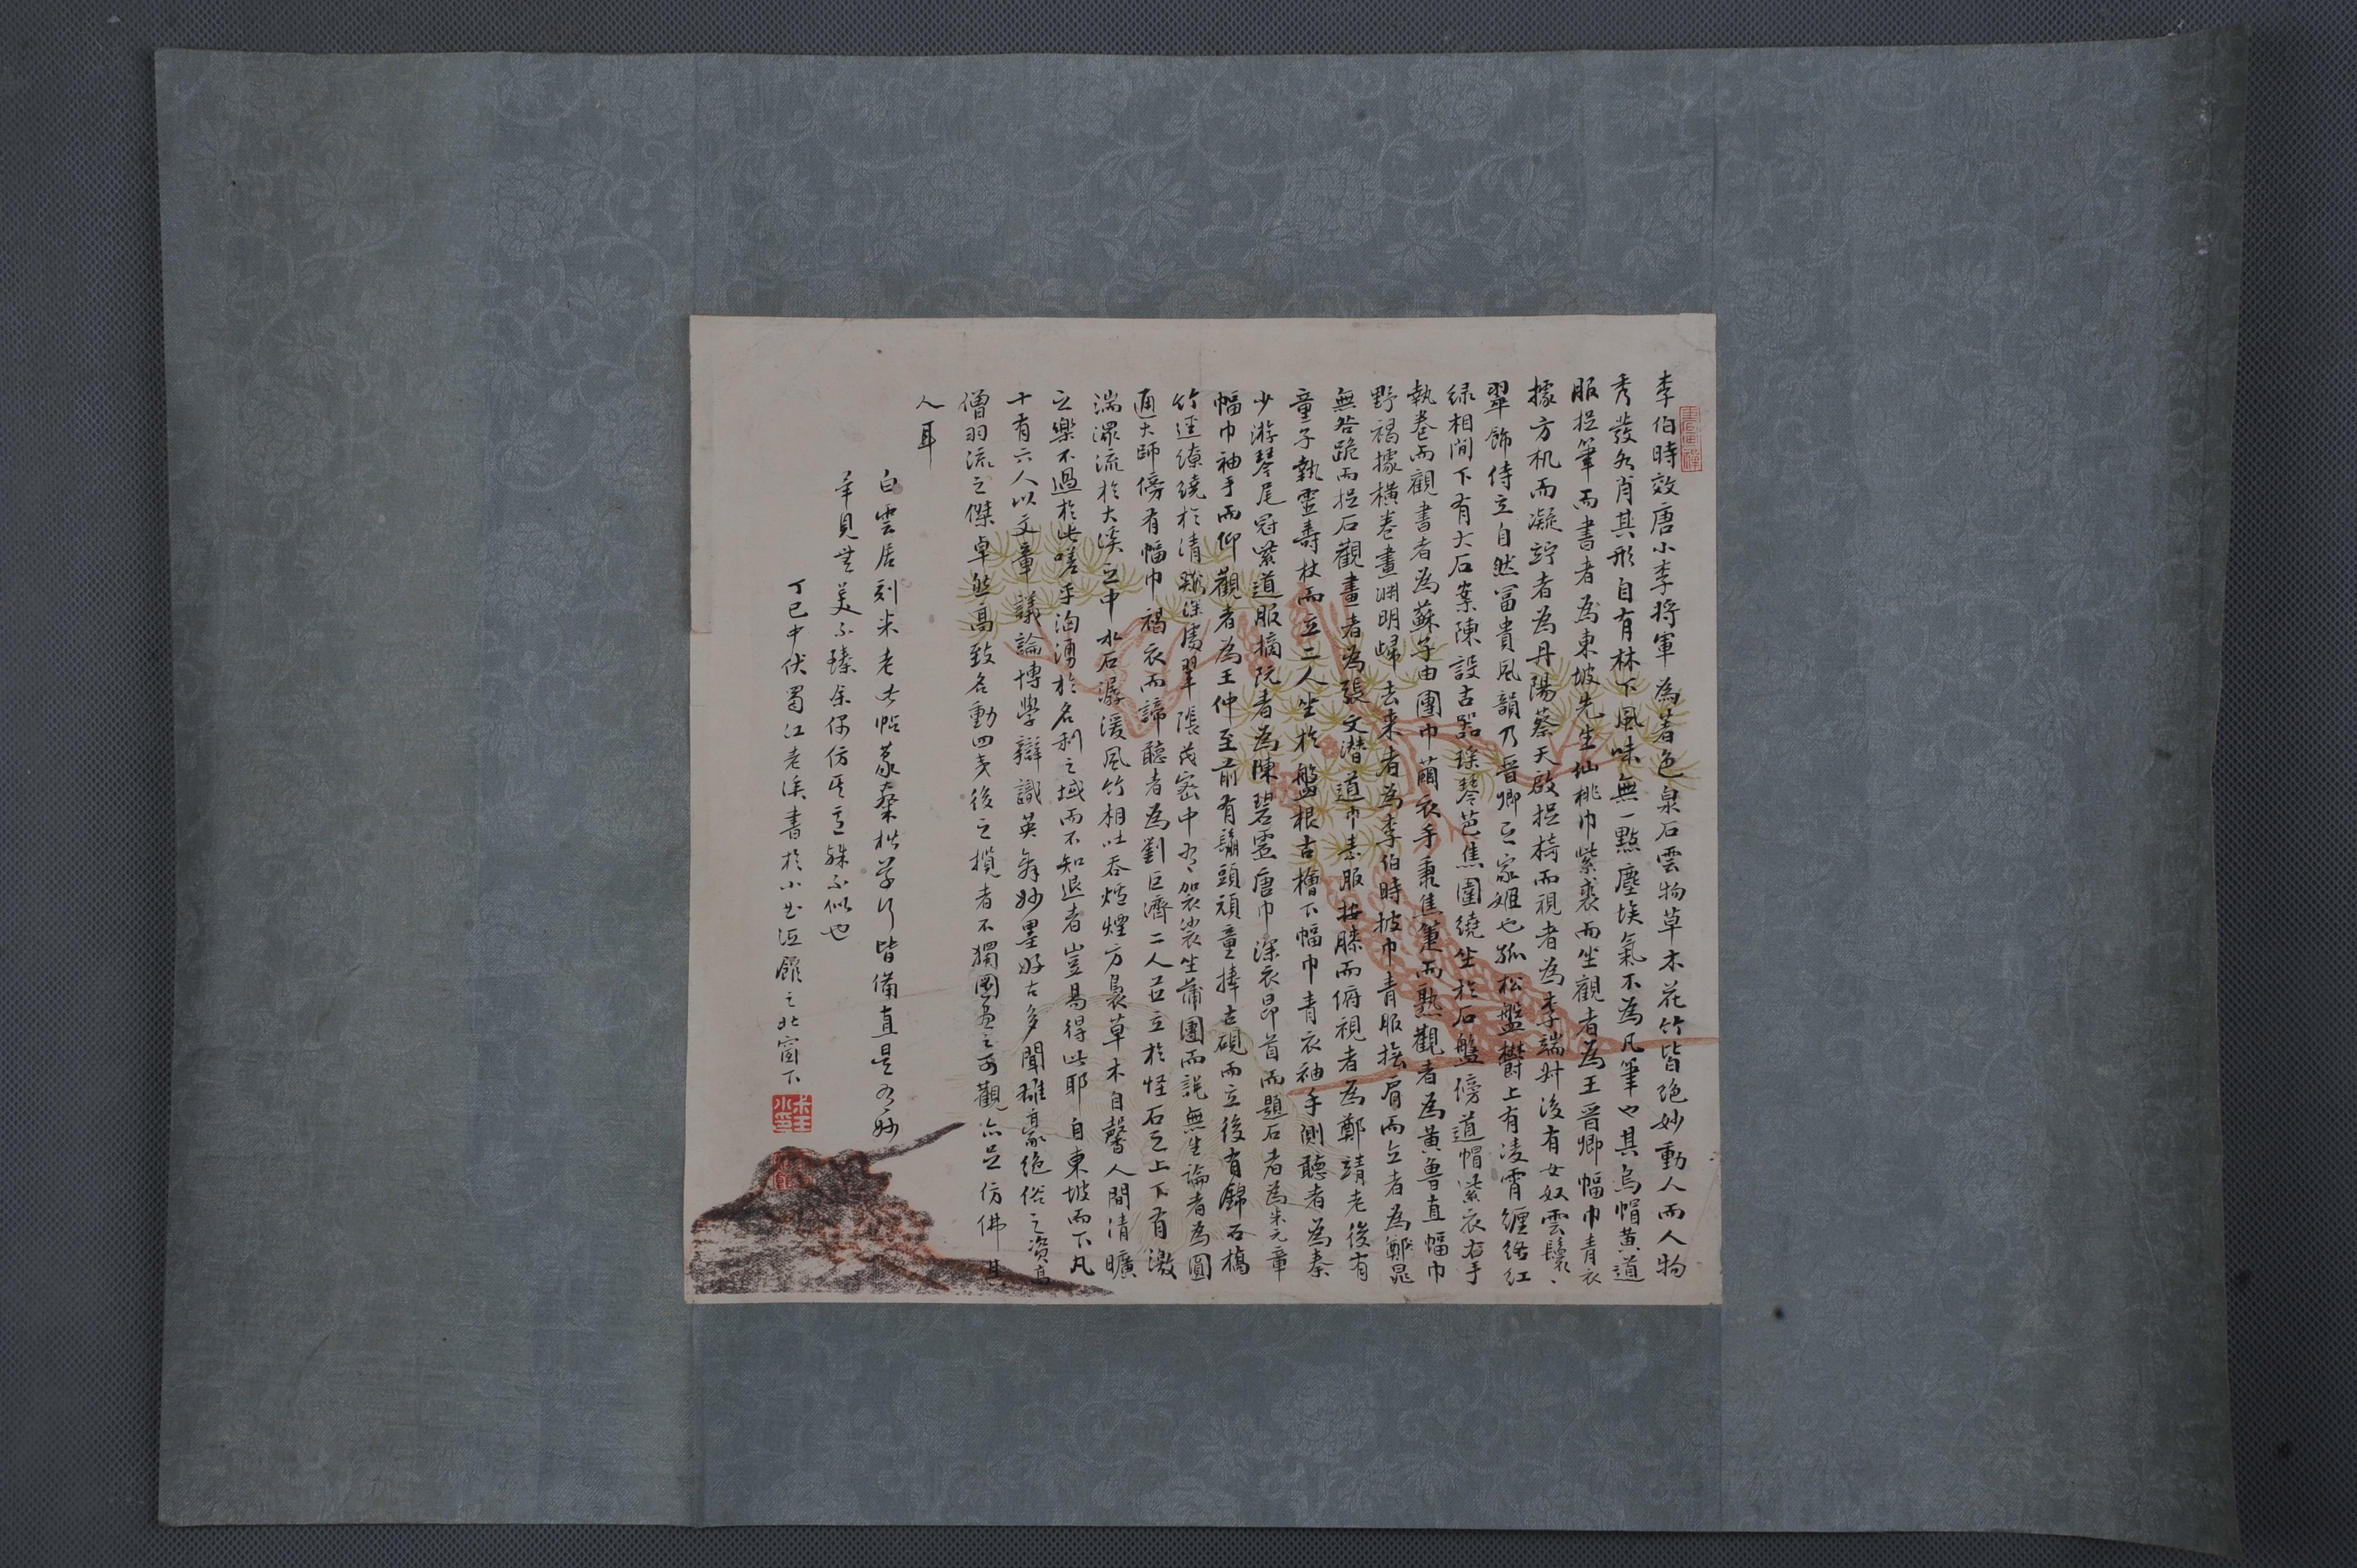 李伯時效唐小李將軍為著色泉石雲物草木花竹皆絶妙動人而人物
秀發各肖其形自有林下風味無一點塵埃氣不為凡筆也其烏帽黄道
服捉筆而書者為東坡先生仙桃巾紫裘而坐觀者為王晋卿幅巾青衣
據方机而凝竚者為丹陽蔡天啟捉椅而視者為李端叔後有女奴雲鬟
翠飾侍立自然富貴風韻乃晋卿之家姬也孤松盤欝上有凌霄纏絡紅
绿相間下有大石案陳設古器瑶琴芭蕉圍繞坐於石盤傍道帽紫衣右手
執卷而觀書者為蘇子由團巾繭衣手秉蕉箑而熟觀者為黄魯直幅巾
野褐據横卷畫淵明歸去来者為李伯時披巾青服撫肩而立者為晁
無咎跪而捉石觀畫者為張文潜道巾素服按膝而俯視者為鄭靖老後有
童子執靈壽杖而立二人坐於盤根古檜下幅巾青衣袖手側聽者為秦
少游琴尾冠紫道服摘阮者為陳碧虚唐巾深衣昂首而題石者為米元章
幅巾袖手而仰觀者為王仲至前有鬅頭頑童捧古硯而立後有錦石橋
竹逕繚繞於清溪深處翠陰茂密中有袈裟坐蒲團而説無生論者為圓
通大師傍有幅巾褐衣而諦聽者為劉巨濟二人並立於怪石之上下有激
湍潀流於大溪之中水石潺湲風竹相吐吞爐煙方裊草木自馨人間清曠
之樂不過於此嗟乎洶湧於名利之域而不知退者豈易得此耶自東坡而下凡
十有六人以文章議論博學辯識英辭妙墨好古多聞雄豪絶俗之資高
僧羽流之傑卓然高致名動四夷後之攬者不獨圖畫之可觀亦足仿佛其
人耳
白雲居刻米老此帖篆隸楷草行皆備直是有妙
辛見無美不臻余偶仿其意殊不似也
丁巳中伏蜀江老漁書於小之北窗下